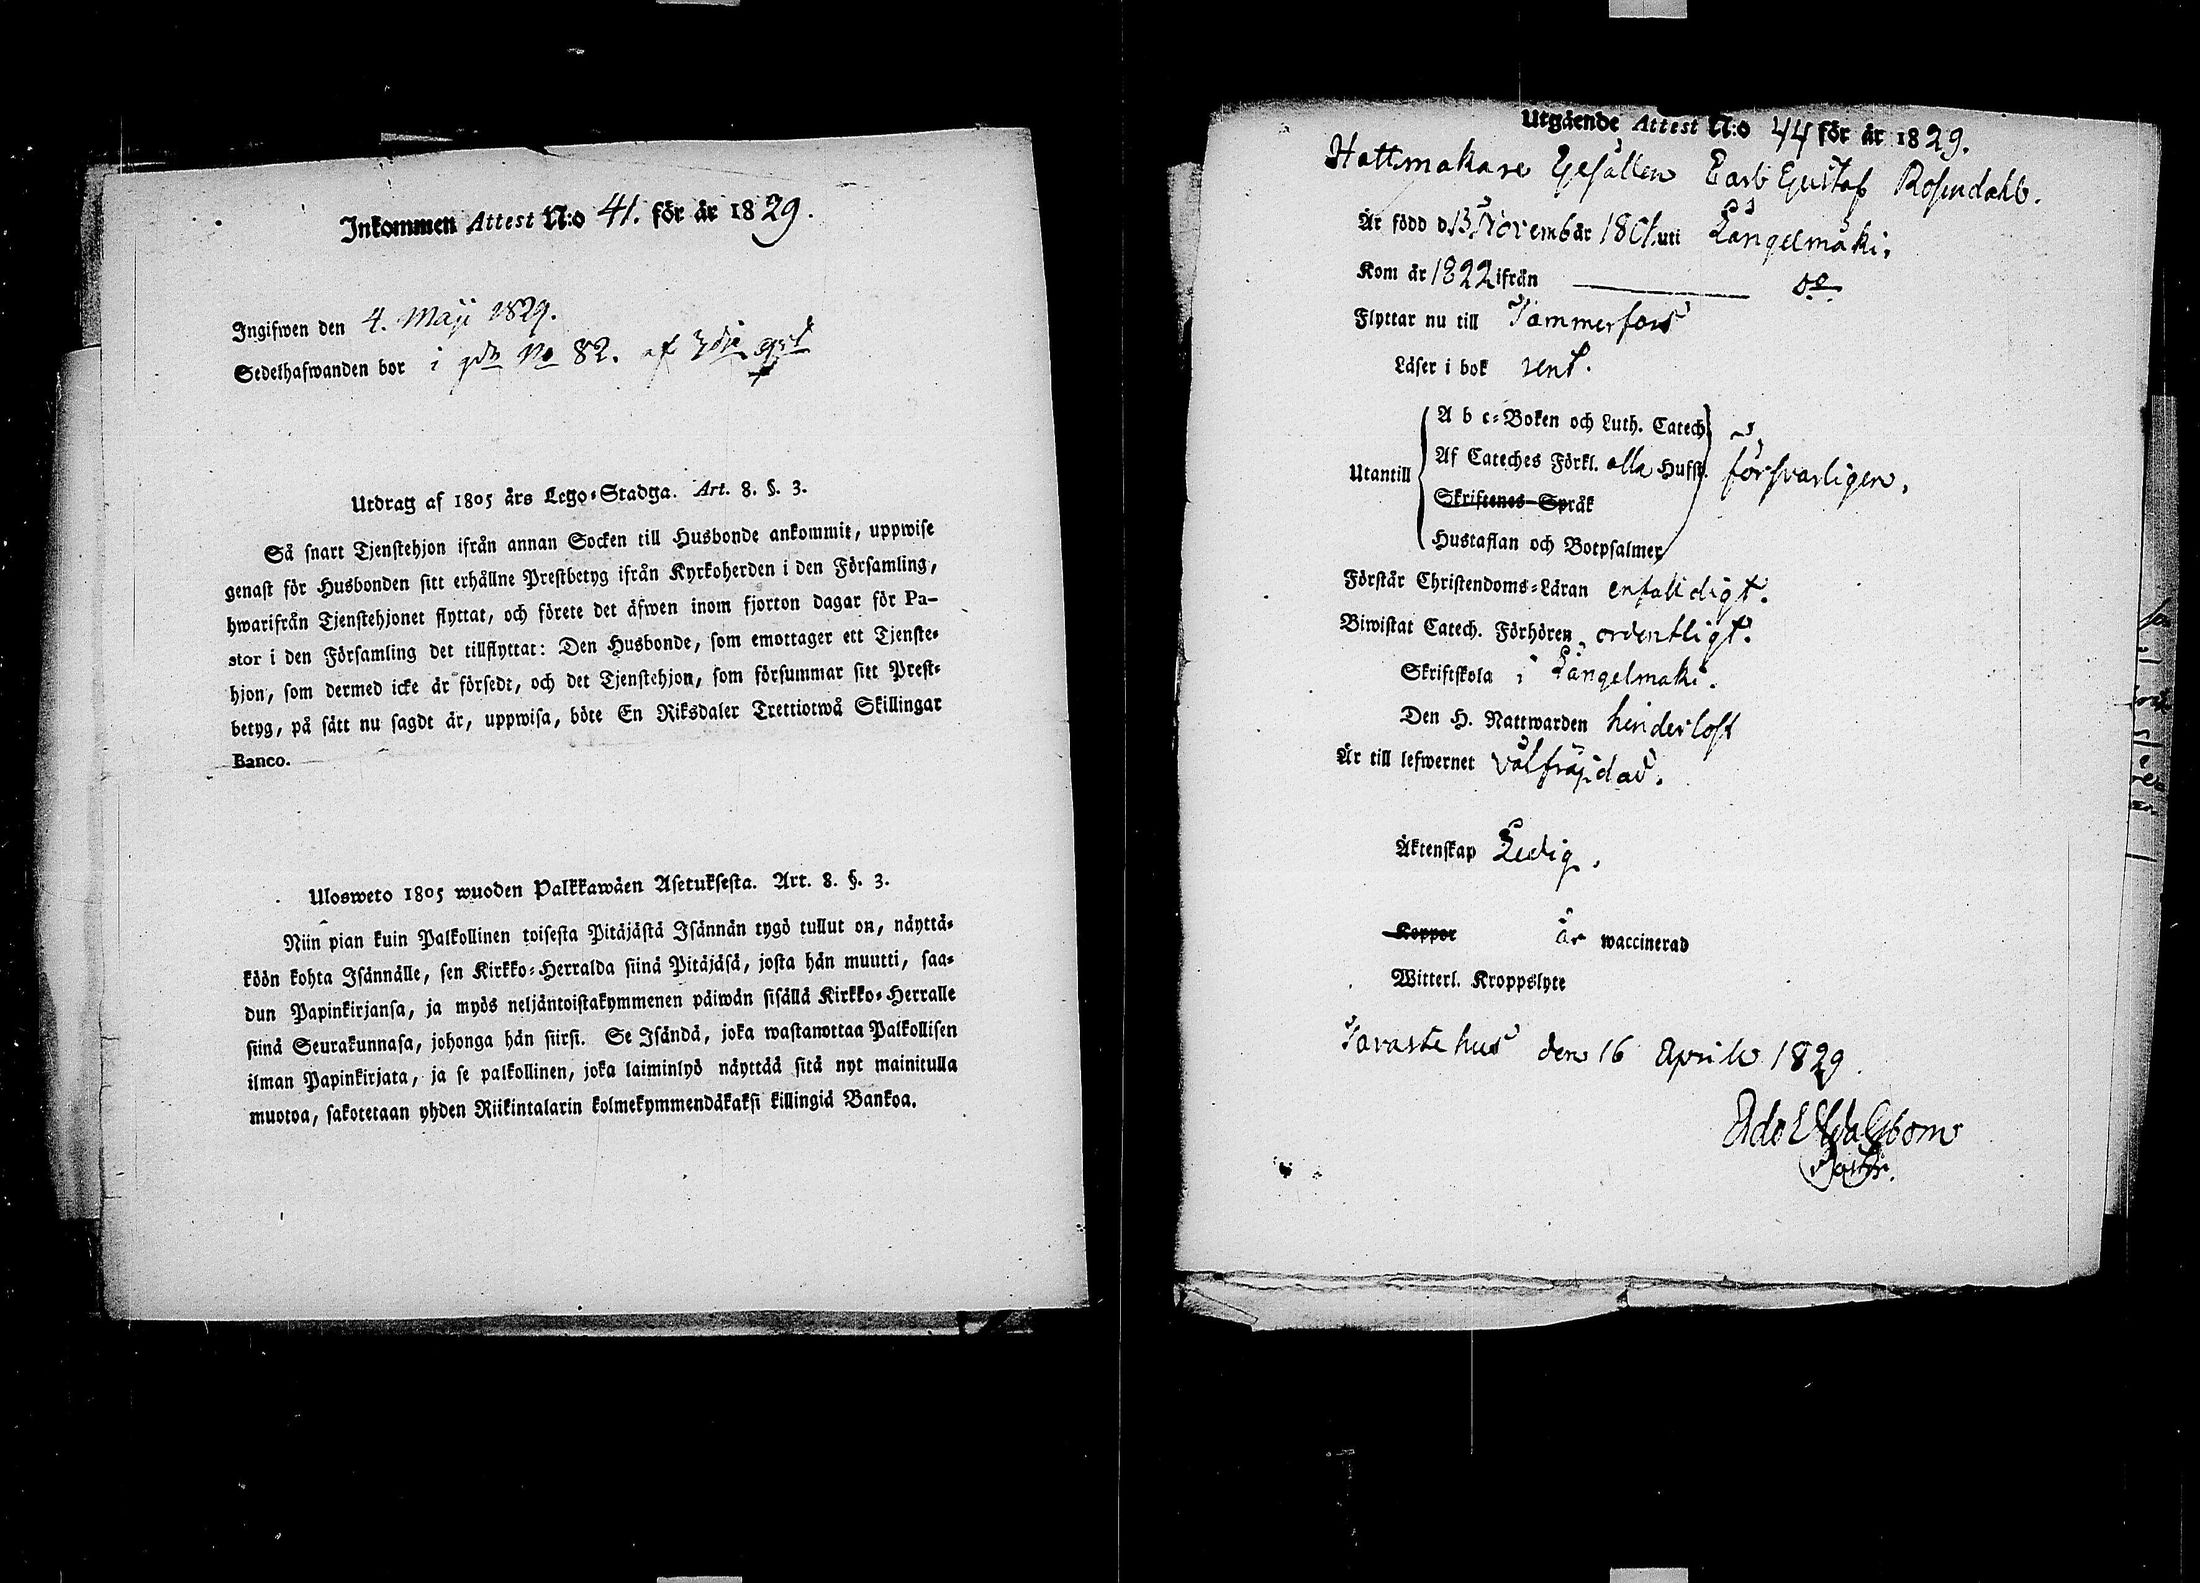 Inkommen Attest N:o 41. för år 1829.
Ingifwen den 4. Maji 1829.
Sedelhafwanden bor i gdn No 82. af 3dje qrt
Utdrag af 1805 års Lego-Stadga. Art. 8. §. 3.
Så snart Tjenstehjon ifrån annan Socken till Husbonde ankommit, uppwise
genast för Husbonden sitt erhållne Prestbetyg ifrån Kyrkoherden i den Församling,
hwarifrån Tjenstehjonet flyttat, och förete det äfwen inom fjorton dagar för Pa-
stor i den Församling det tillflyttat: Den Husbonde, som emottager ett Tjenste-
hjon, som dermed icke är försedt, och det Tjenstehjon, som försummar sitt Prest-
betyg, på sätt nu sagdt är, uppwisa, böte En Riksdaler Trettiotwå Skillingar
Banco.
Ulosweto 1805 wuoden Palkkawäen Asetuksesta. Art. 8. §. 3.
Niin pian kuin Palkollinen toisesta Pitäjästä Isännän tygö tullut on, näyttä-
köön kohta Isännälle, sen Kirkko-Herralda siinä Pitäjäsä, josta hän muutti, saa-
dun Papinkirjansa, ja myös neljäntoistakymmenen päiwän sisällä Kirkko-Herralle
siinä Seurakunnasa, johonga hän siirsi. Se Isändä, joka wastanottaa Palkollisen
ilman Papinkirjata, ja se palkollinen, joka laiminlyö näyttää sitä nyt mainitulla
muotoa, sakotetaan yhden Riikintalarin kolmekymmendäkaksi killingiä Bankoa.
Utgående Attest N:o 44 för år 1829.
Hattmakare Gesällen Carl Gustaf Rosendahl.
Är född d. 13 Novemb år 1801. uti Längelmäki.
Kom år 1822 ifrån do
Flyttar nu till Tammerfors
Läser i bok rent.
Utantill
A b c-Boken och Luth. Catech.
Af Cateches Förkl. alla Hufst. försvarligen.
Skriftenes Språk
Hustaflan och Botpsalmer
Förstår Christendoms-Läran enfalldigt.
Biwistat Catech. Förhören ordentligt.
Skriftskola i Längelmäki.
Den H. Nattwarden hinderlöst
Är till lefwernet välfräjdad.
Äktenskap Ledig.
Koppor är waccinerad
Witterl. Kroppslyte
Tavastehus den 16 Aprill 1829.
Pastor.